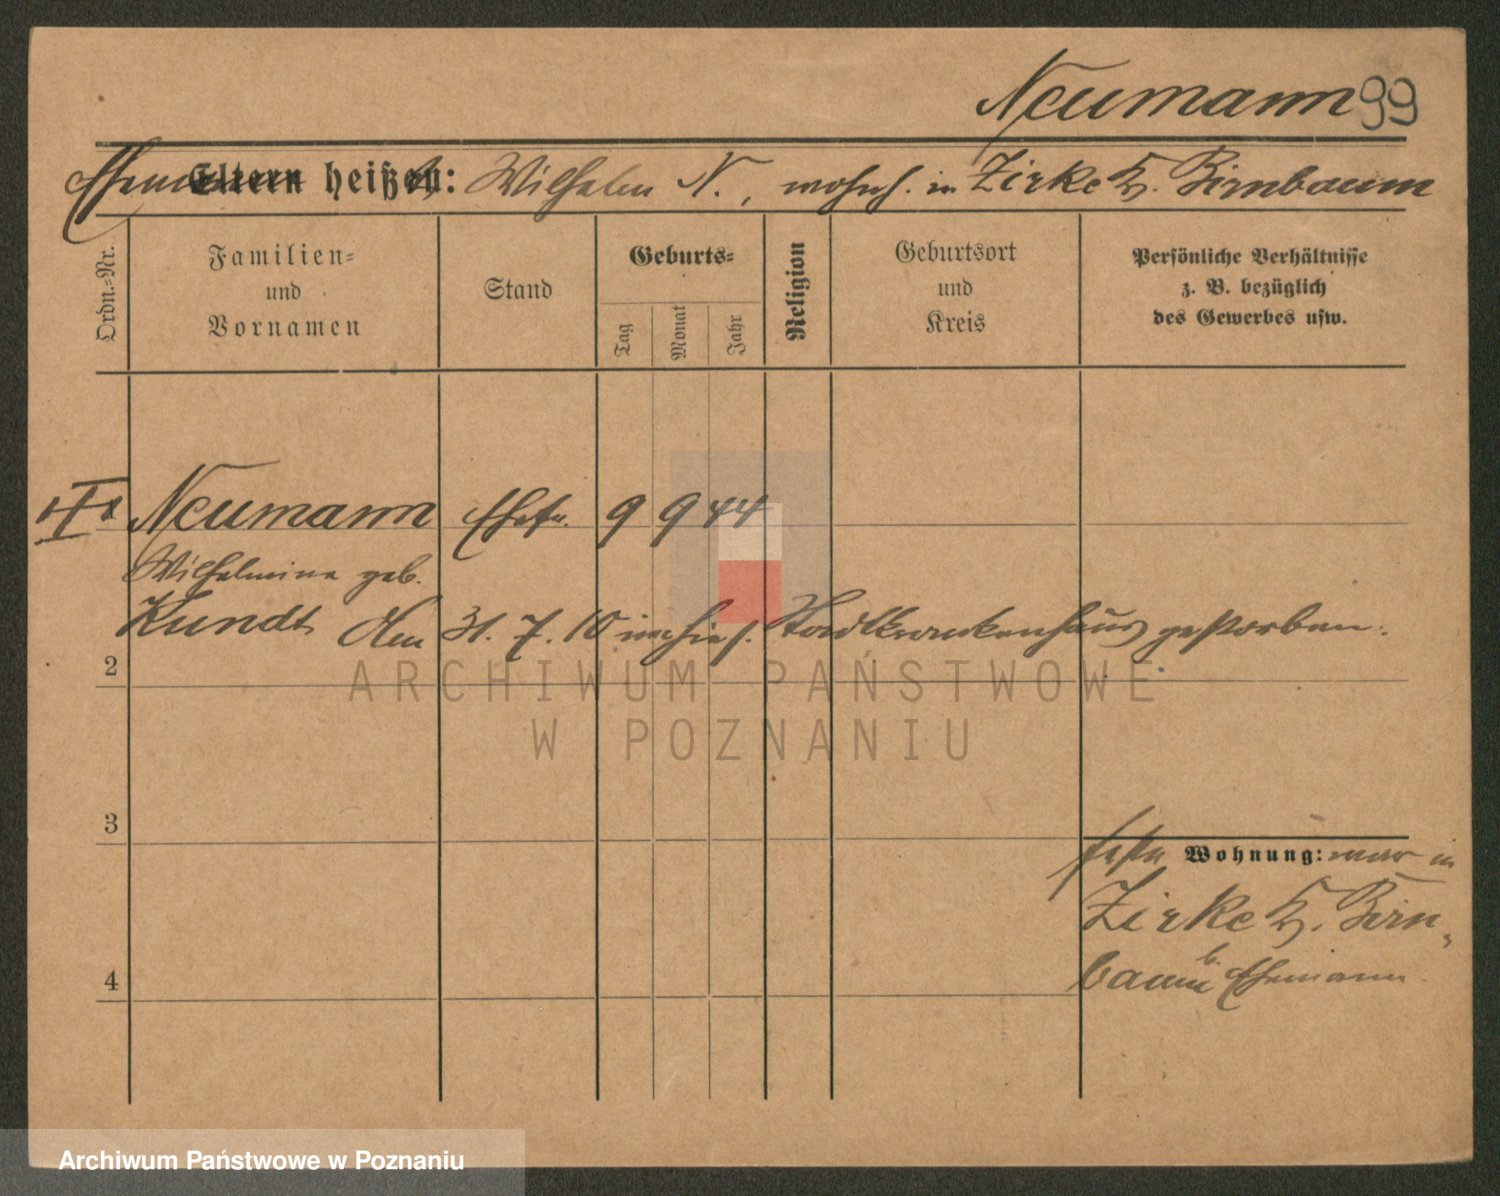 Neumann 99
Ehemann heißt: Wilhelm N., wohnh. in Zirke K. Birnbaum
Ordn.-Nr.
Familien-
und
Vornamen
Stand
Geburts-
Tag
Monat
Jahr
Religion
Geburtsort
und
Kreis
Persönliche Verhältnisse
z. B. bezüglich
des Gewerbes usw.
Neumann Ehefr. 9 9 44
Wilhelmine geb.
Kundt den 31. 7. 10 im hies. Stadtkrankenhaus gestorben.
2
3
4
feste Wohnung: war in
Zirke K. Birn-
baum b. Ehemann.
ARCHIWUM PAŃSTWOWE
W POZNANIU
Archiwum Państwowe w Poznaniu